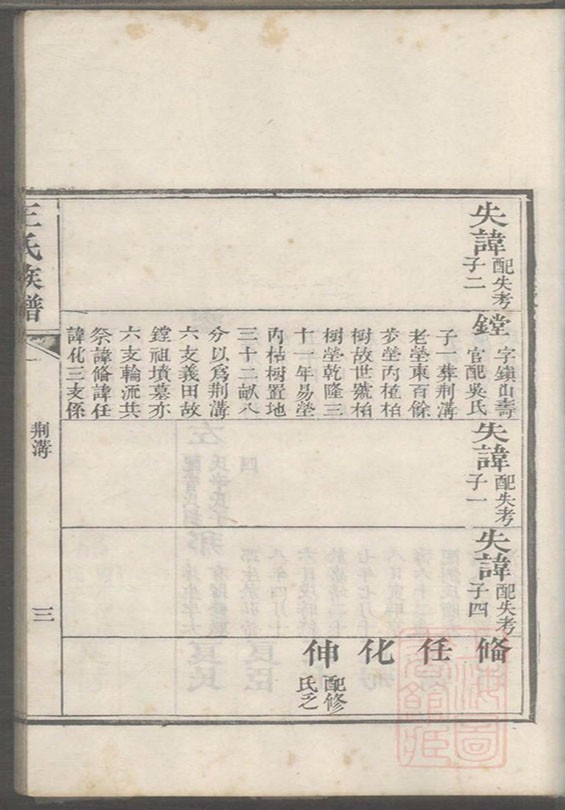 失諱 配失考
子二
鏜 字鎮山壽
官配吳氏
子一葬荆溝
老塋東百餘
步塋内植柏
樹故世號柏
樹塋乾隆三
十一年易塋
内枯樹置地
三十二畝八
分以爲荆溝
六支義田故
鏜祖墳墓亦
六支輪流共
祭諱脩諱任
諱化三支係
失諱 配失考
子一
失諱 配失考
子四
脩
任
化
伸 配修
氏乏
王氏族譜
荆溝
三